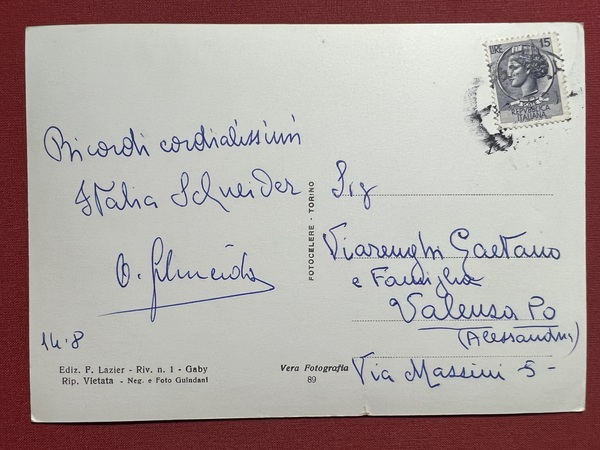 LIRE 15
REPVBBLICA
ITALIANA
Ricordi cordialissimi
Italia Schneider
14-8
Ediz. F. Lazier - Riv. n. 1 - Gaby
Rip. Vietata - Neg. e Foto Guindani
FOTOCELERE - TORINO
Vera Fotografia
89
Sig
Viarenghi Gaetano
e Famiglia
Valenza Po
(Alessandria)
Via Massini 5-